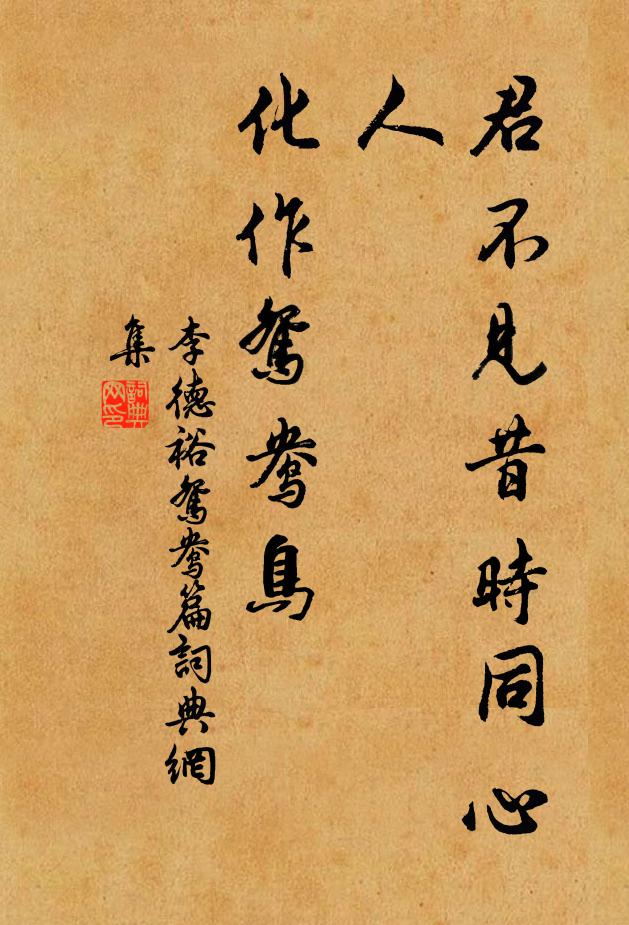 君不見昔時同心
人
化作鴛鴦鳥
李德裕鴛鴦篇詞典網
集
詞典
网印